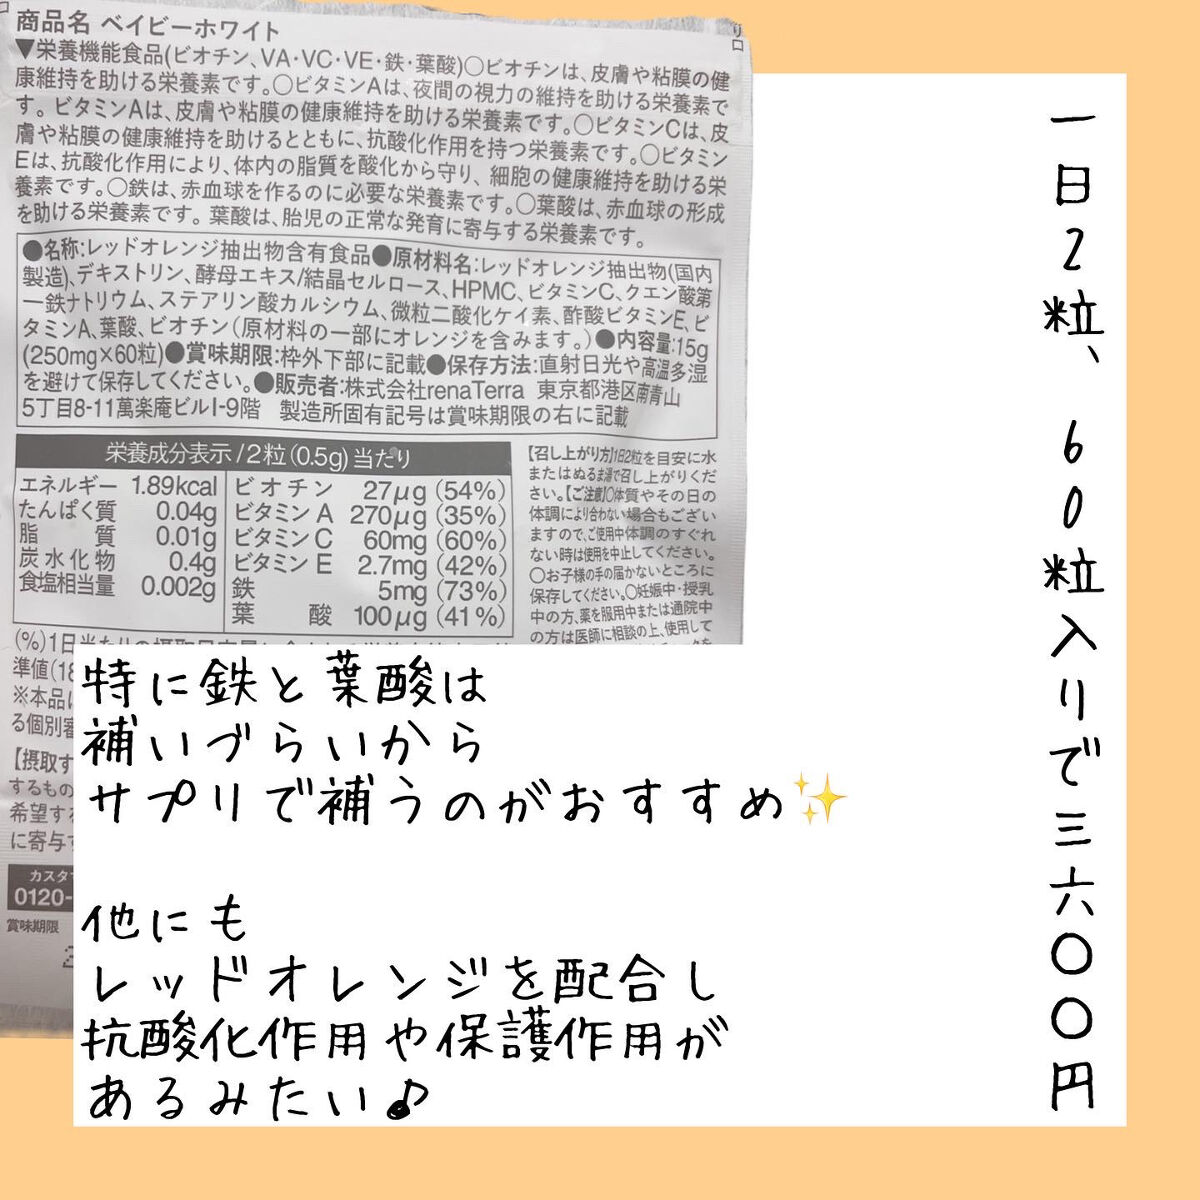 商品名 ベイビーホワイト
▼栄養機能食品(ビオチン、VA・VC・VE・鉄・葉酸)〇ビオチンは、皮膚や粘膜の健
康維持を助ける栄養素です。〇ビタミンAは、夜間の視力の維持を助ける栄養素で
す。ビタミンAは、皮膚や粘膜の健康維持を助ける栄養素です。〇ビタミンCは、皮
膚や粘膜の健康維持を助けるとともに、抗酸化作用を持つ栄養素です。〇ビタミン
Eは、抗酸化作用により、体内の脂質を酸化から守り、細胞の健康維持を助ける栄
養素です。〇鉄は、赤血球を作るのに必要な栄養素です。〇葉酸は、赤血球の形成
を助ける栄養素です。葉酸は、胎児の正常な発育に寄与する栄養素です。
●名称:レッドオレンジ抽出物含有食品●原材料名:レッドオレンジ抽出物(国内
製造)、デキストリン、酵母エキス/結晶セルロース、HPMC、ビタミンC、クエン酸第
一鉄ナトリウム、ステアリン酸カルシウム、微粒二酸化ケイ素、酢酸ビタミンE、ビ
タミンA、葉酸、ビオチン(原材料の一部にオレンジを含みます。)●内容量:15g
(250mg×60粒)●賞味期限:枠外下部に記載●保存方法:直射日光や高温多湿
を避けて保存してください。●販売者:株式会社renaTerra 東京都港区南青山
5丁目8-11萬楽庵ビルI-9階 製造所固有記号は賞味期限の右に記載
栄養成分表示/2粒(0.5g)当たり
エネルギー 1.89kcal
たんぱく質 0.04g
脂質 0.01g
炭水化物 0.4g
食塩相当量 0.002g
ビオチン 27μg (54%)
ビタミンA 270μg (35%)
ビタミンC 60mg (60%)
ビタミンE 2.7mg (42%)
鉄 5mg (73%)
葉酸 100μg (41%)
【召し上がり方】1日2粒を目安に水
またはぬるま湯で召し上がりくださ
い。【ご注意】〇体質やその日の
体調により合わない場合もござい
ますので、ご使用中体調のすぐれ
ない時は使用を中止してください。
〇お子様の手の届かないところに
保存してください。〇妊娠中・授乳
中の方、薬を服用中または通院中
の方は医師に相談の上、使用して
(%)1日当たりの摂取目安量に
準値(18
※本品は
る個別審
【摂取す
するもの
希望する
に寄与す
カスタマ
0120-
賞味期限
一日2粒、60粒入りで三六〇〇円
特に鉄と葉酸は
補いづらいから
サプリで補うのがおすすめ✨
他にも
レッドオレンジを配合し
抗酸化作用や保護作用が
あるみたい♪